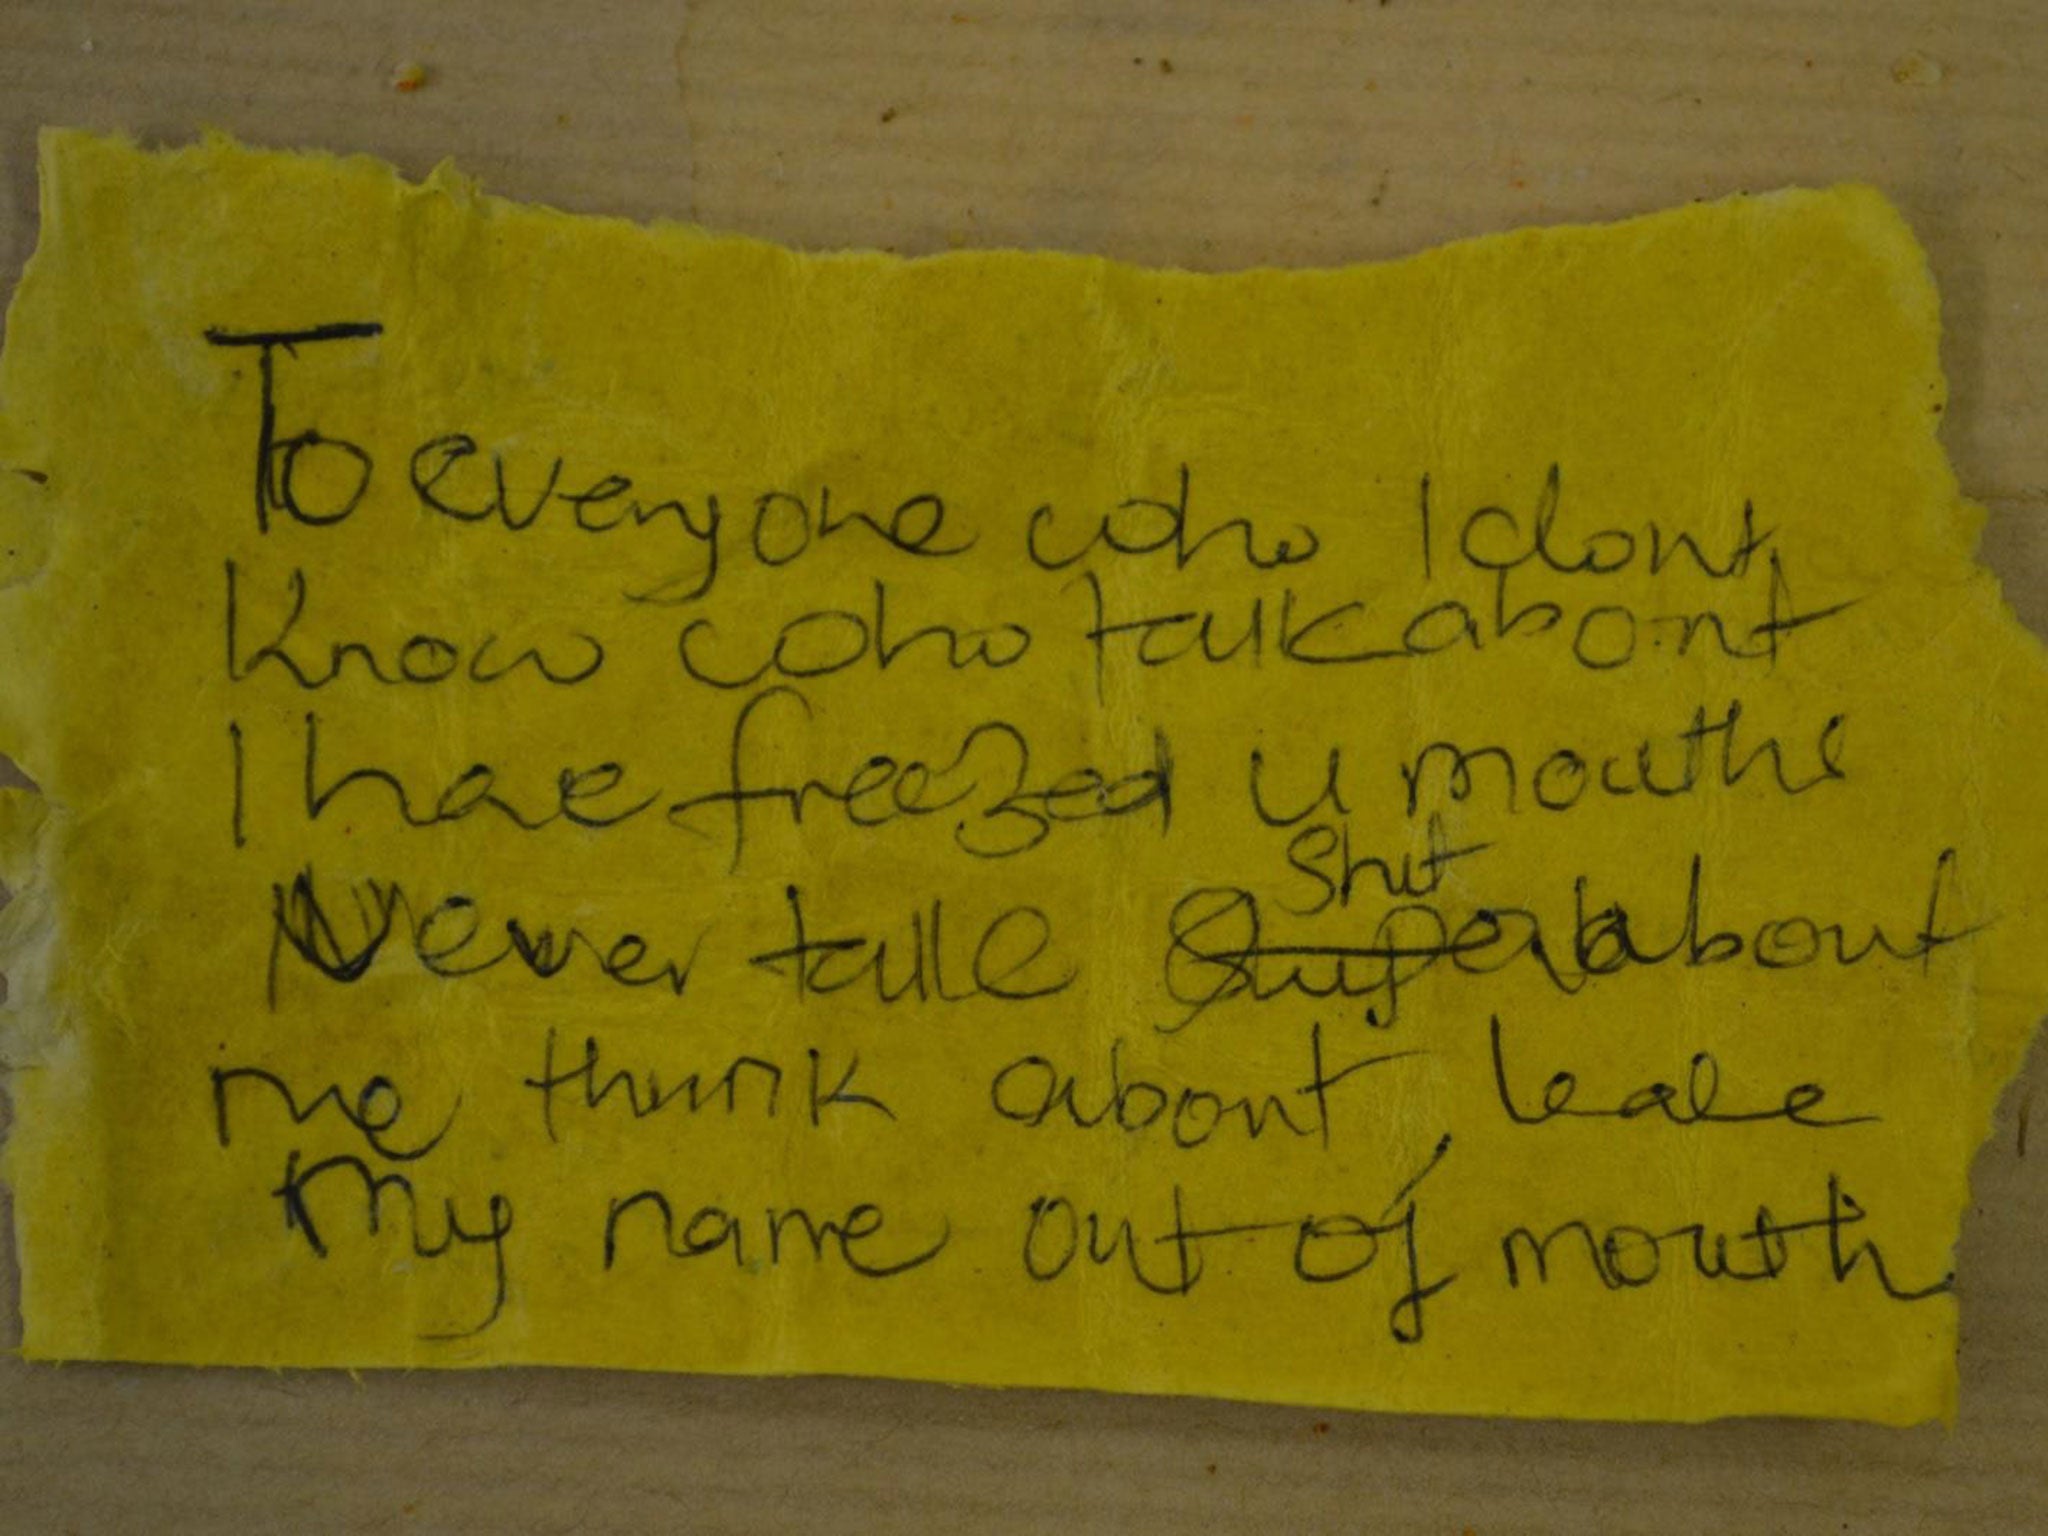 To everyone who I dont
Know who talk about
I have freezed u mouths
Never talk Shit about
me think about leave
My name out of mouth